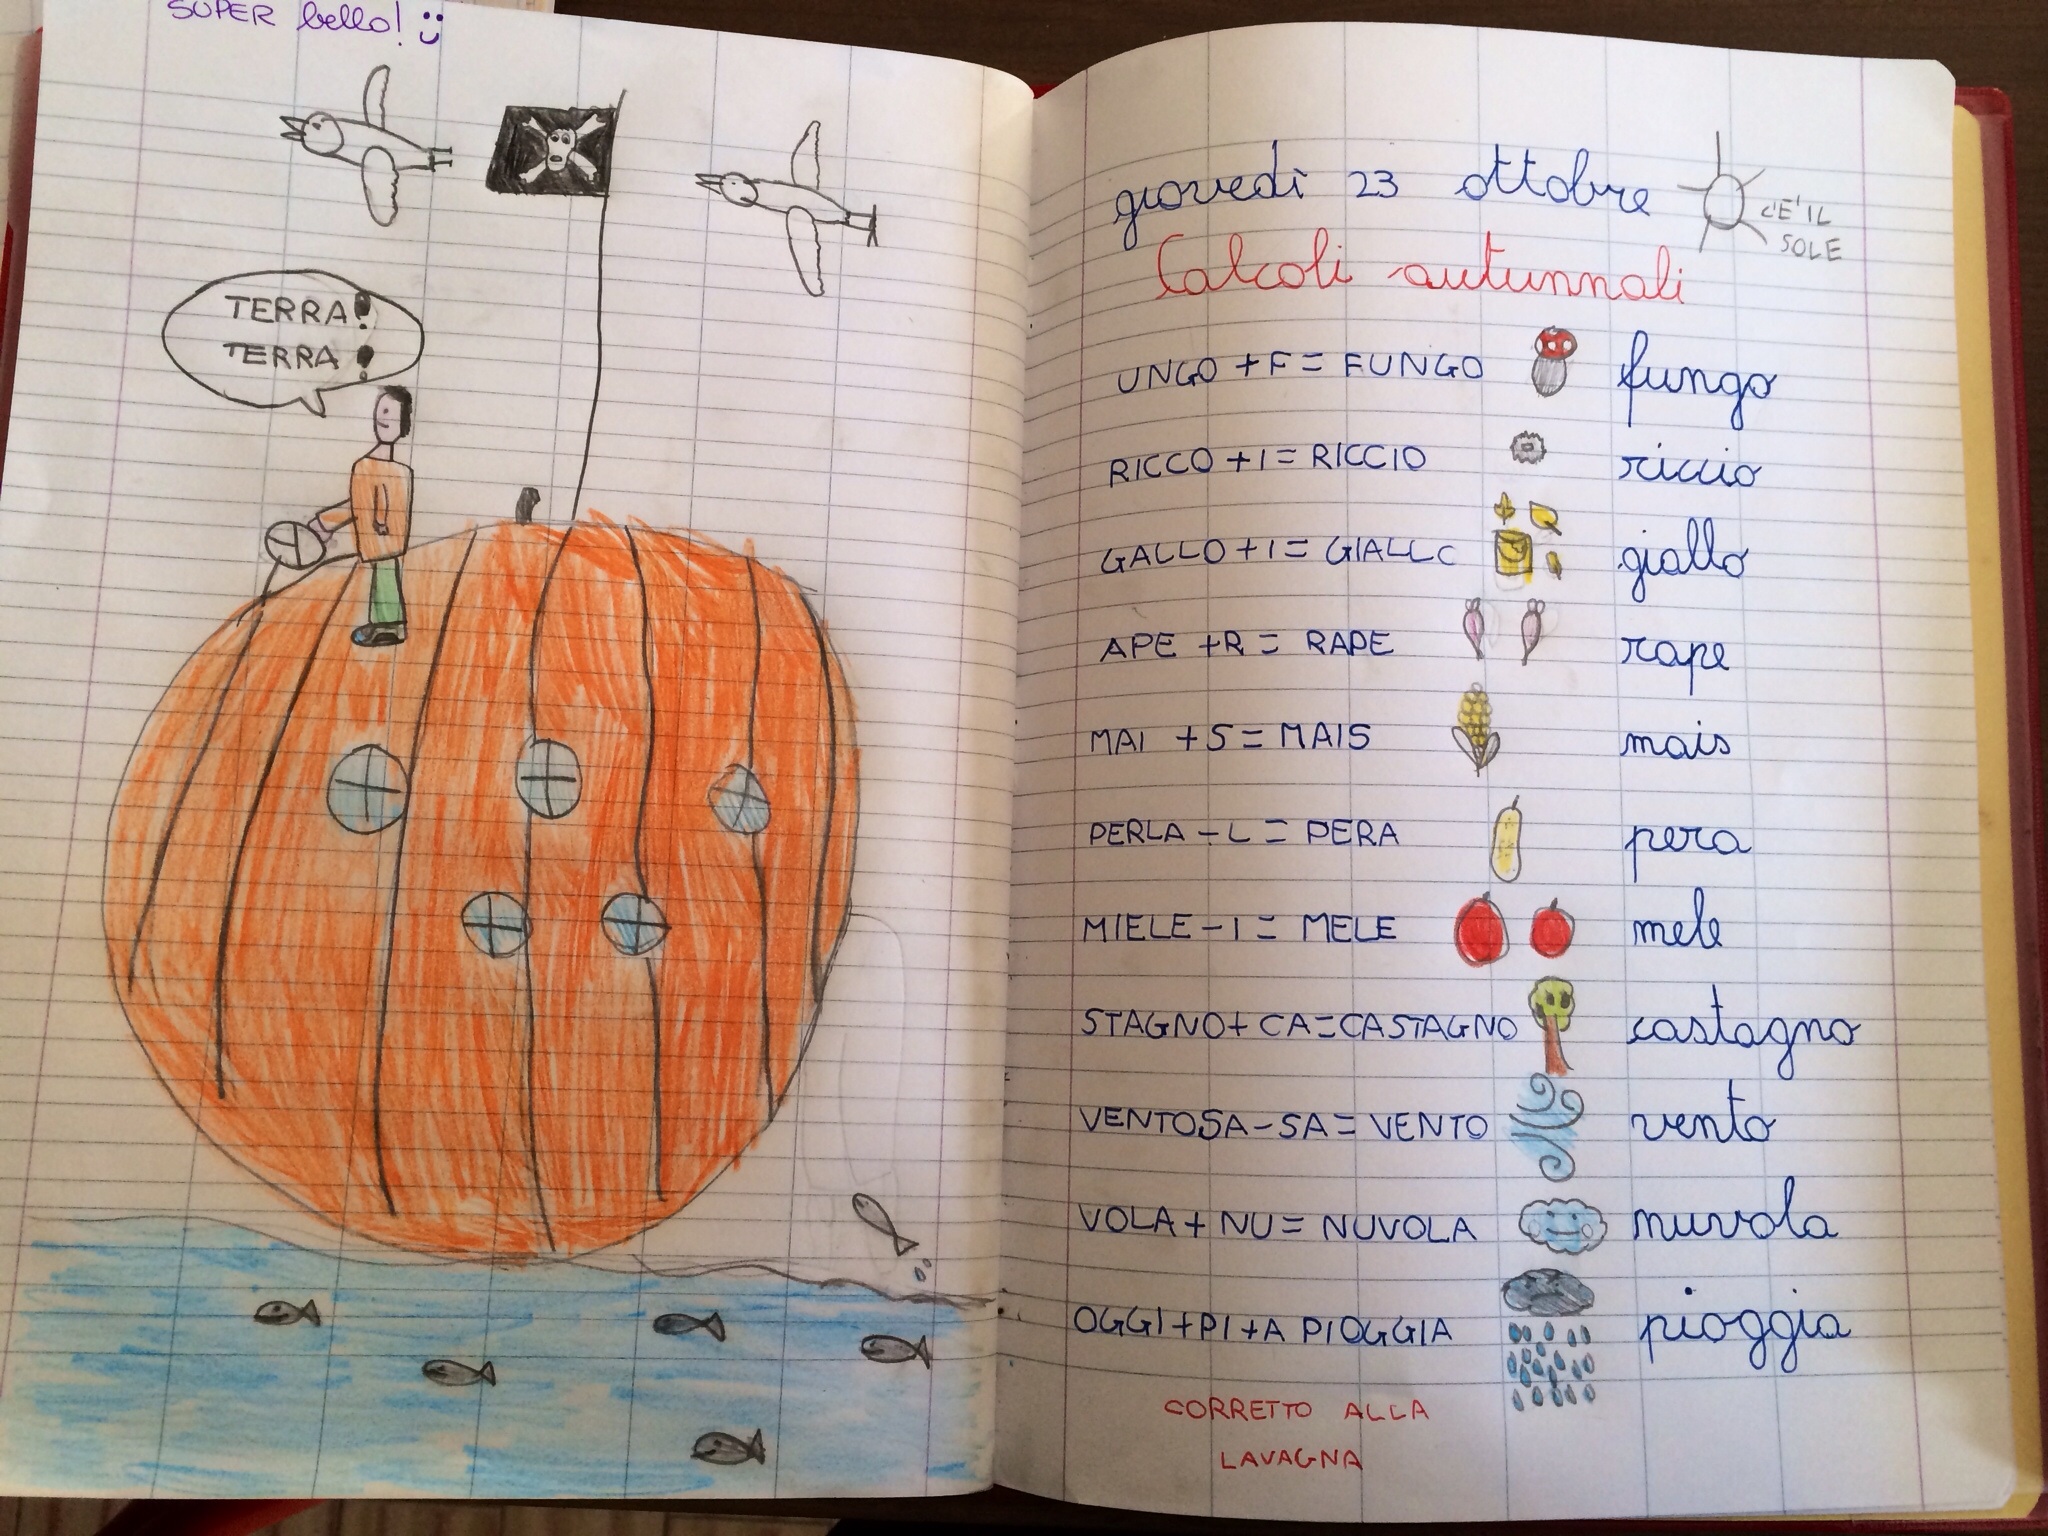 SUPER bello!
TERRA!
TERRA!
giovedì 23 ottobre
C'E' IL
SOLE
Calcoli autunnali
UNGO + F = FUNGO fungo
RICCO + I = RICCIO riccio
GALLO + I = GIALLO giallo
APE + R = RAPE rape
MAI + S = MAIS mais
PERLA - L = PERA pera
MIELE - I = MELE mele
STAGNO + CA = CASTAGNO castagno
VENTOSA - SA = VENTO vento
VOLA + NU = NUVOLA nuvola
OGGI + PI + A PIOGGIA pioggia
CORRETTO ALLA
LAVAGNA